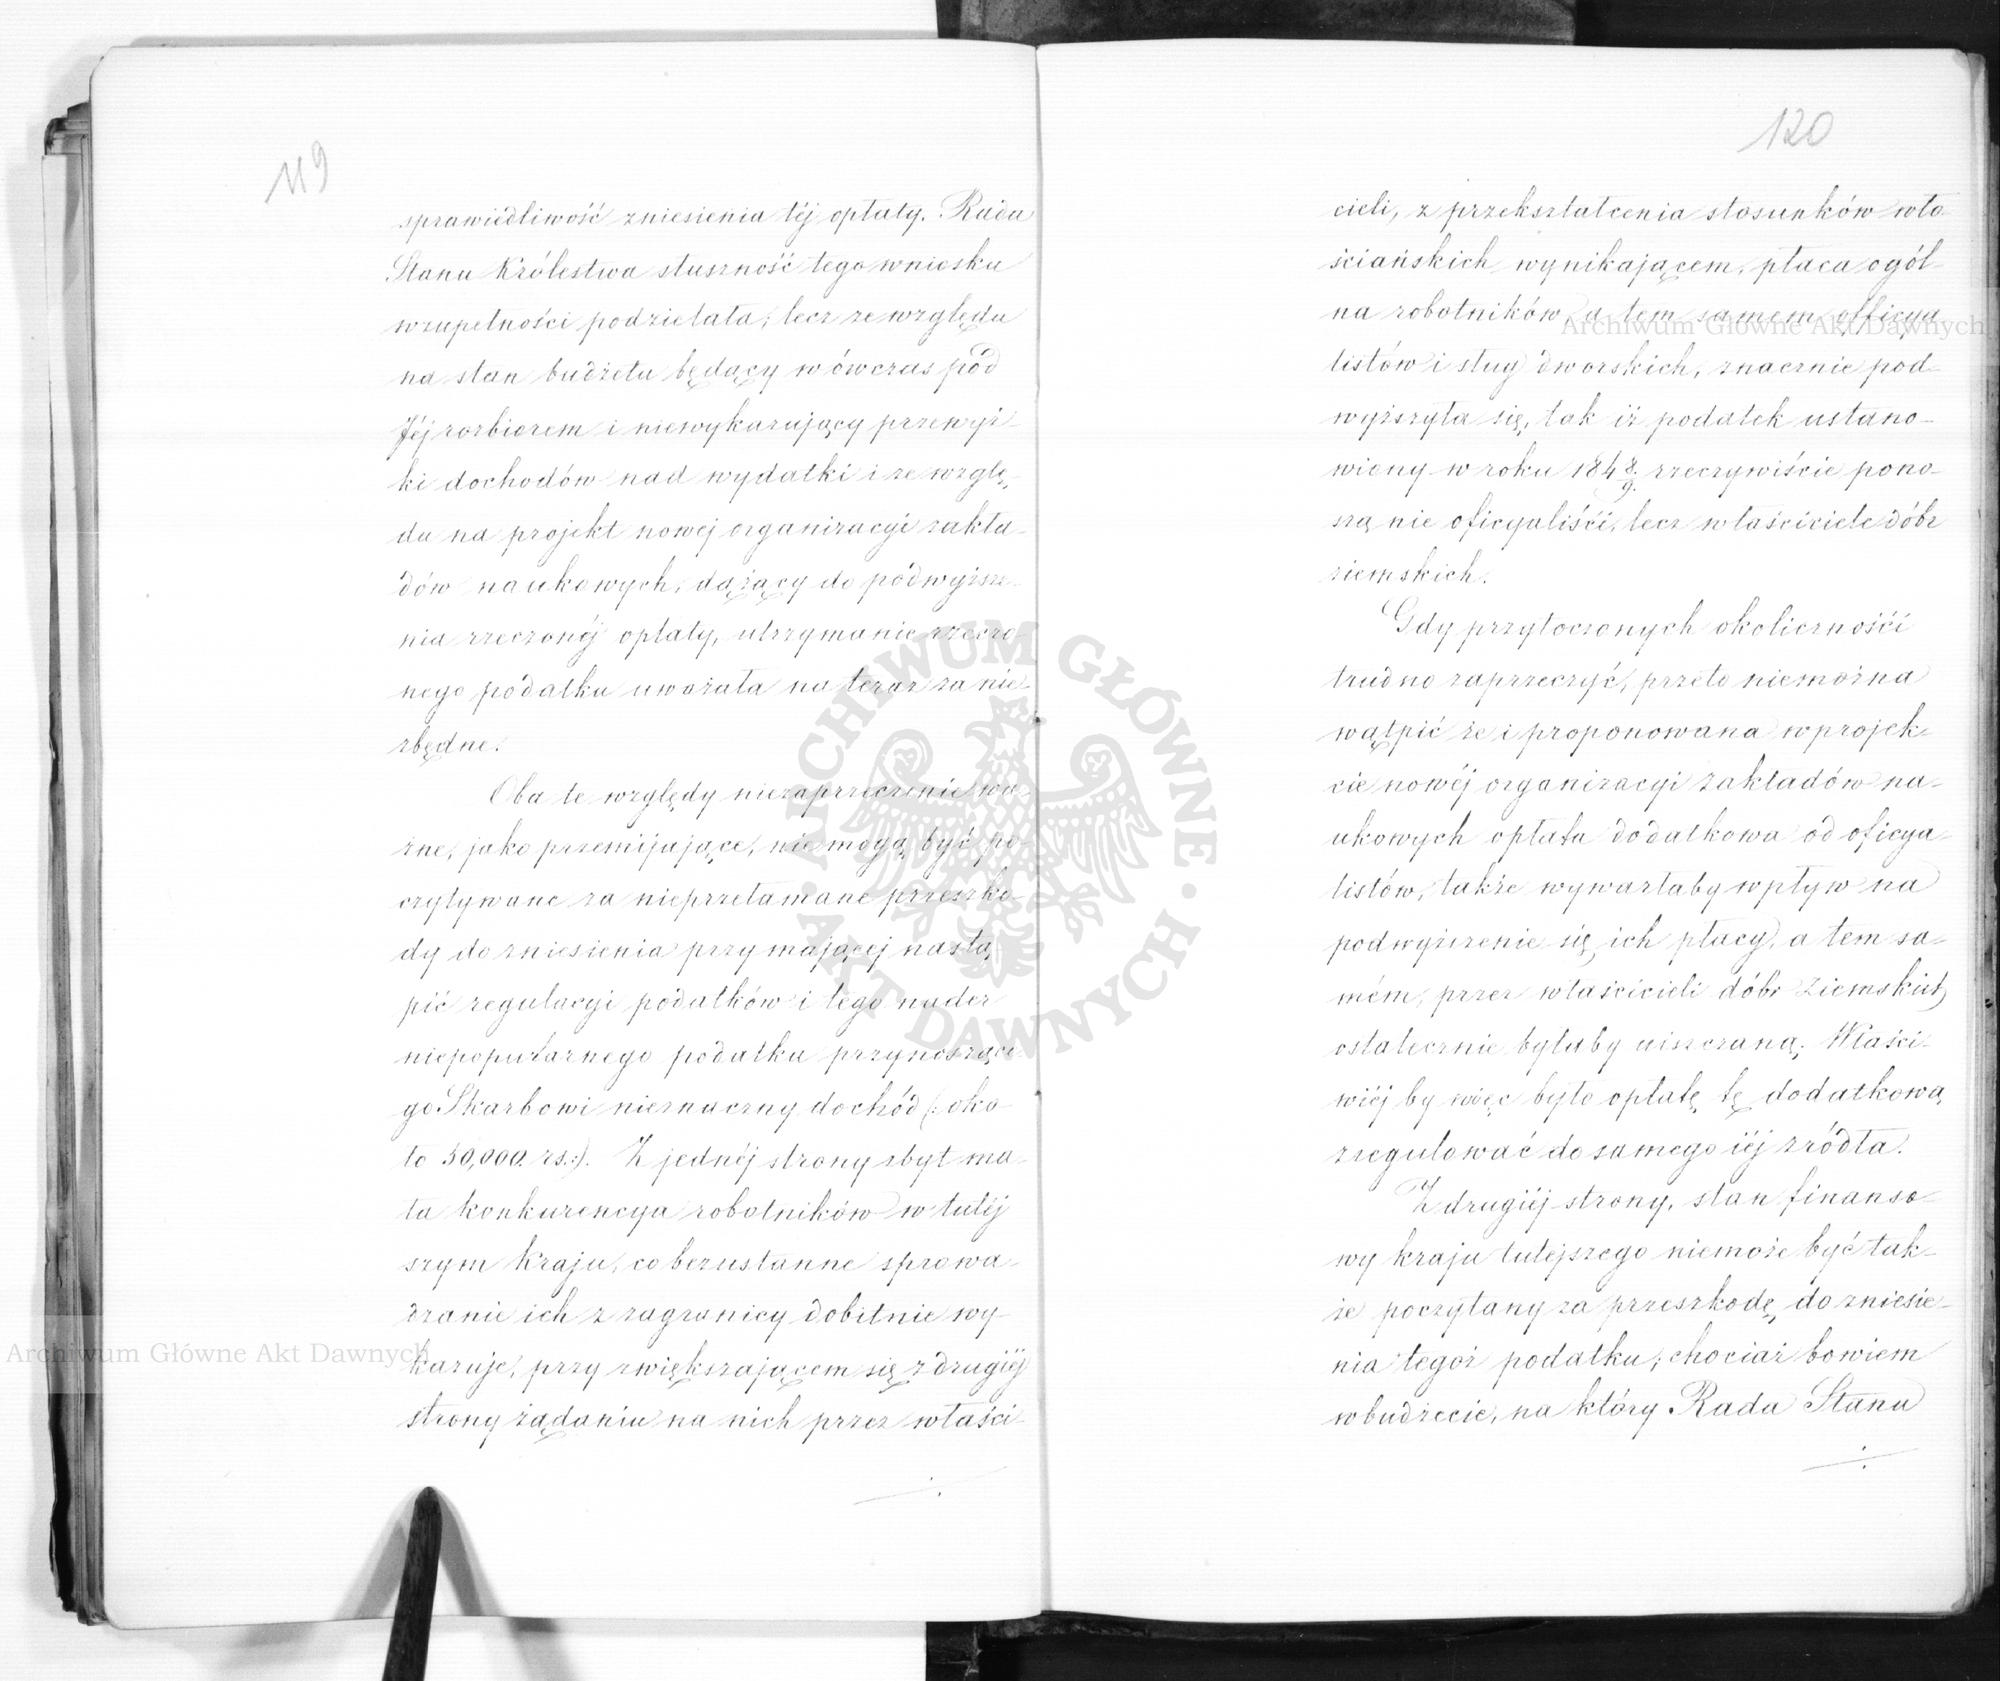 119
sprawiedliwość zniesienia téj opłaty. Rada
Stanu Królestwa słuszność tego wniosku
wzupełności podzielała; lecz ze względu
na stan budżetu będący wówczas pod
Jéj rozbiorem i niewykazujący przewyż-
ki dochodów nad wydatki i ze wzglę-
du na projekt nowej organizacyi zakła-
dów naukowych, dążący do podwyższe-
nia rzeczonéj opłaty, utrzymanie rzeczo-
nego podatku uważała na teraz za nie-
zbędne.
Oba te względy niezaprzeczenie wa-
żne, jako przemijające, nie mogą być po-
czytywane za nieprzełamane przeszko-
dy do zniesienia przy mającej nastą-
pić regulacyi podatków i tego nader
niepopularnego podatku przynoszące-
go Skarbowi nieznaczny dochód (: oko-
ło 50,000 rs.:). Z jednéj strony zbyt ma-
ła konkurencya robotników w tutéj
szym kraju, co bezustanne sprowa-
dzanie ich z zagranicy dobitnie wy-
kazuje, przy zwiększającem się z drugiéj
strony żądaniu na nich przez właści-
120
cieli, z przekształcenia stosunków wło
ściańskich wynikającem, płaca ogól-
na robotników a tem samem officya
listów i sług dworskich, znacznie pod-
wyższyła się, tak iż podatek ustano-
wiony w roku 1848/9. rzeczywiście pono-
szą nie oficyaliści, lecz właściciele dóbr
ziemskich.
Gdy przytoczonych okoliczności
trudno zaprzeczyć, przeto niemożna
wątpić że i proponowana w projek-
cie nowéj organizacyi zakładów na-
ukowych opłata dodatkowa od oficya-
listów, także wywarłaby wpływ na
podwyższenie się ich płacy, a tem sa-
mém, przez właścicieli dóbr ziemskich
ostatecznie byłaby uiszczaną. Właści-
wiéj by więc było opłatę tę dodatkową
zregulować do samego iéj zródła.
Z drugiéj strony, stan finanso-
wy kraju tutejszego niemoże być tak-
że poczytany za przeszkodę do zniesie-
nia tegoż podatku; chociaż bowiem
w budżecie, na który Rada Stanu
ARCHIWUM GŁÓWNE AKT DAWNYCH
Archiwum Główne Akt Dawnych
Archiwum Główne Akt Dawnych